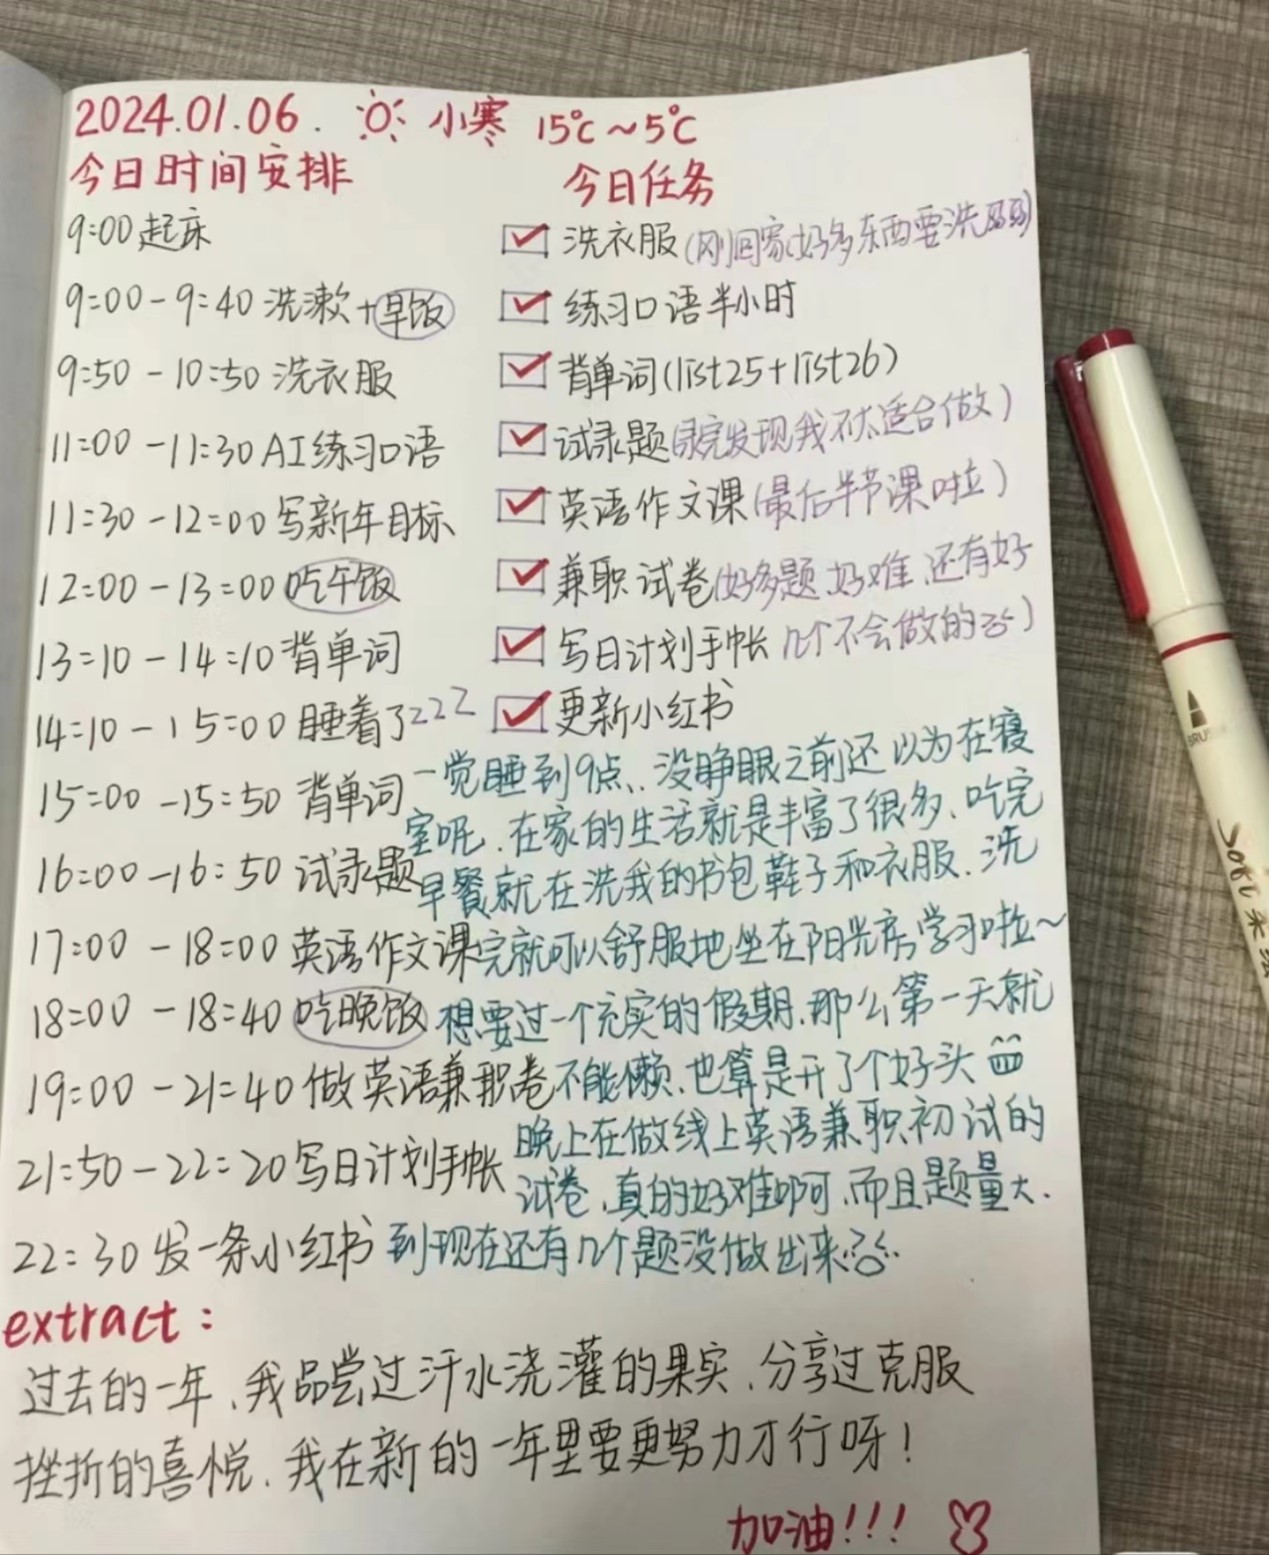 2024.01.06. 小寒 15℃~5℃
今日时间安排
9:00 起床
9:00-9:40 洗漱+早饭
9:50-10:50 洗衣服
11:00-11:30 AI练习口语
11:30-12:00 写新年目标
12:00-13:00 吃午饭
13:10-14:10 背单词
14:10-15:00 睡着了zzz
15:00-15:50 背单词
16:00-16:50 试录题
17:00-18:00 英语作文课
18:00-18:40 吃晚饭
19:00-21:40 做英语兼职卷
21:50-22:20 写日计划手帐
22:30 发一条小红书
今日任务
洗衣服(刚回家好多东西要洗)
练习口语半小时
背单词(list25+list26)
试录题(录完发现我不太适合做)
英语作文课(最后半节课啦)
兼职试卷(好多题、好难、还有好
几个不会做的)
写日计划手帐
更新小红书
一觉睡到9点、没睁眼之前还以为在寝
室呢、在家的生活就是丰富了很多、吃完
早餐就在洗我的书包鞋子和衣服、洗
完就可以舒服地坐在阳光房学习啦~
想要过一个充实的假期、那么第一天就
不能懒、也算是开了个好头
晚上在做线上英语兼职初试的
试卷、真的好难啊、而且题量大.
到现在还有几个题没做出来
extract:
过去的一年、我品尝过汗水浇灌的果实、分享过克服
挫折的喜悦、我在新的一年里要更努力才行呀!
加油!!!
BRUSH